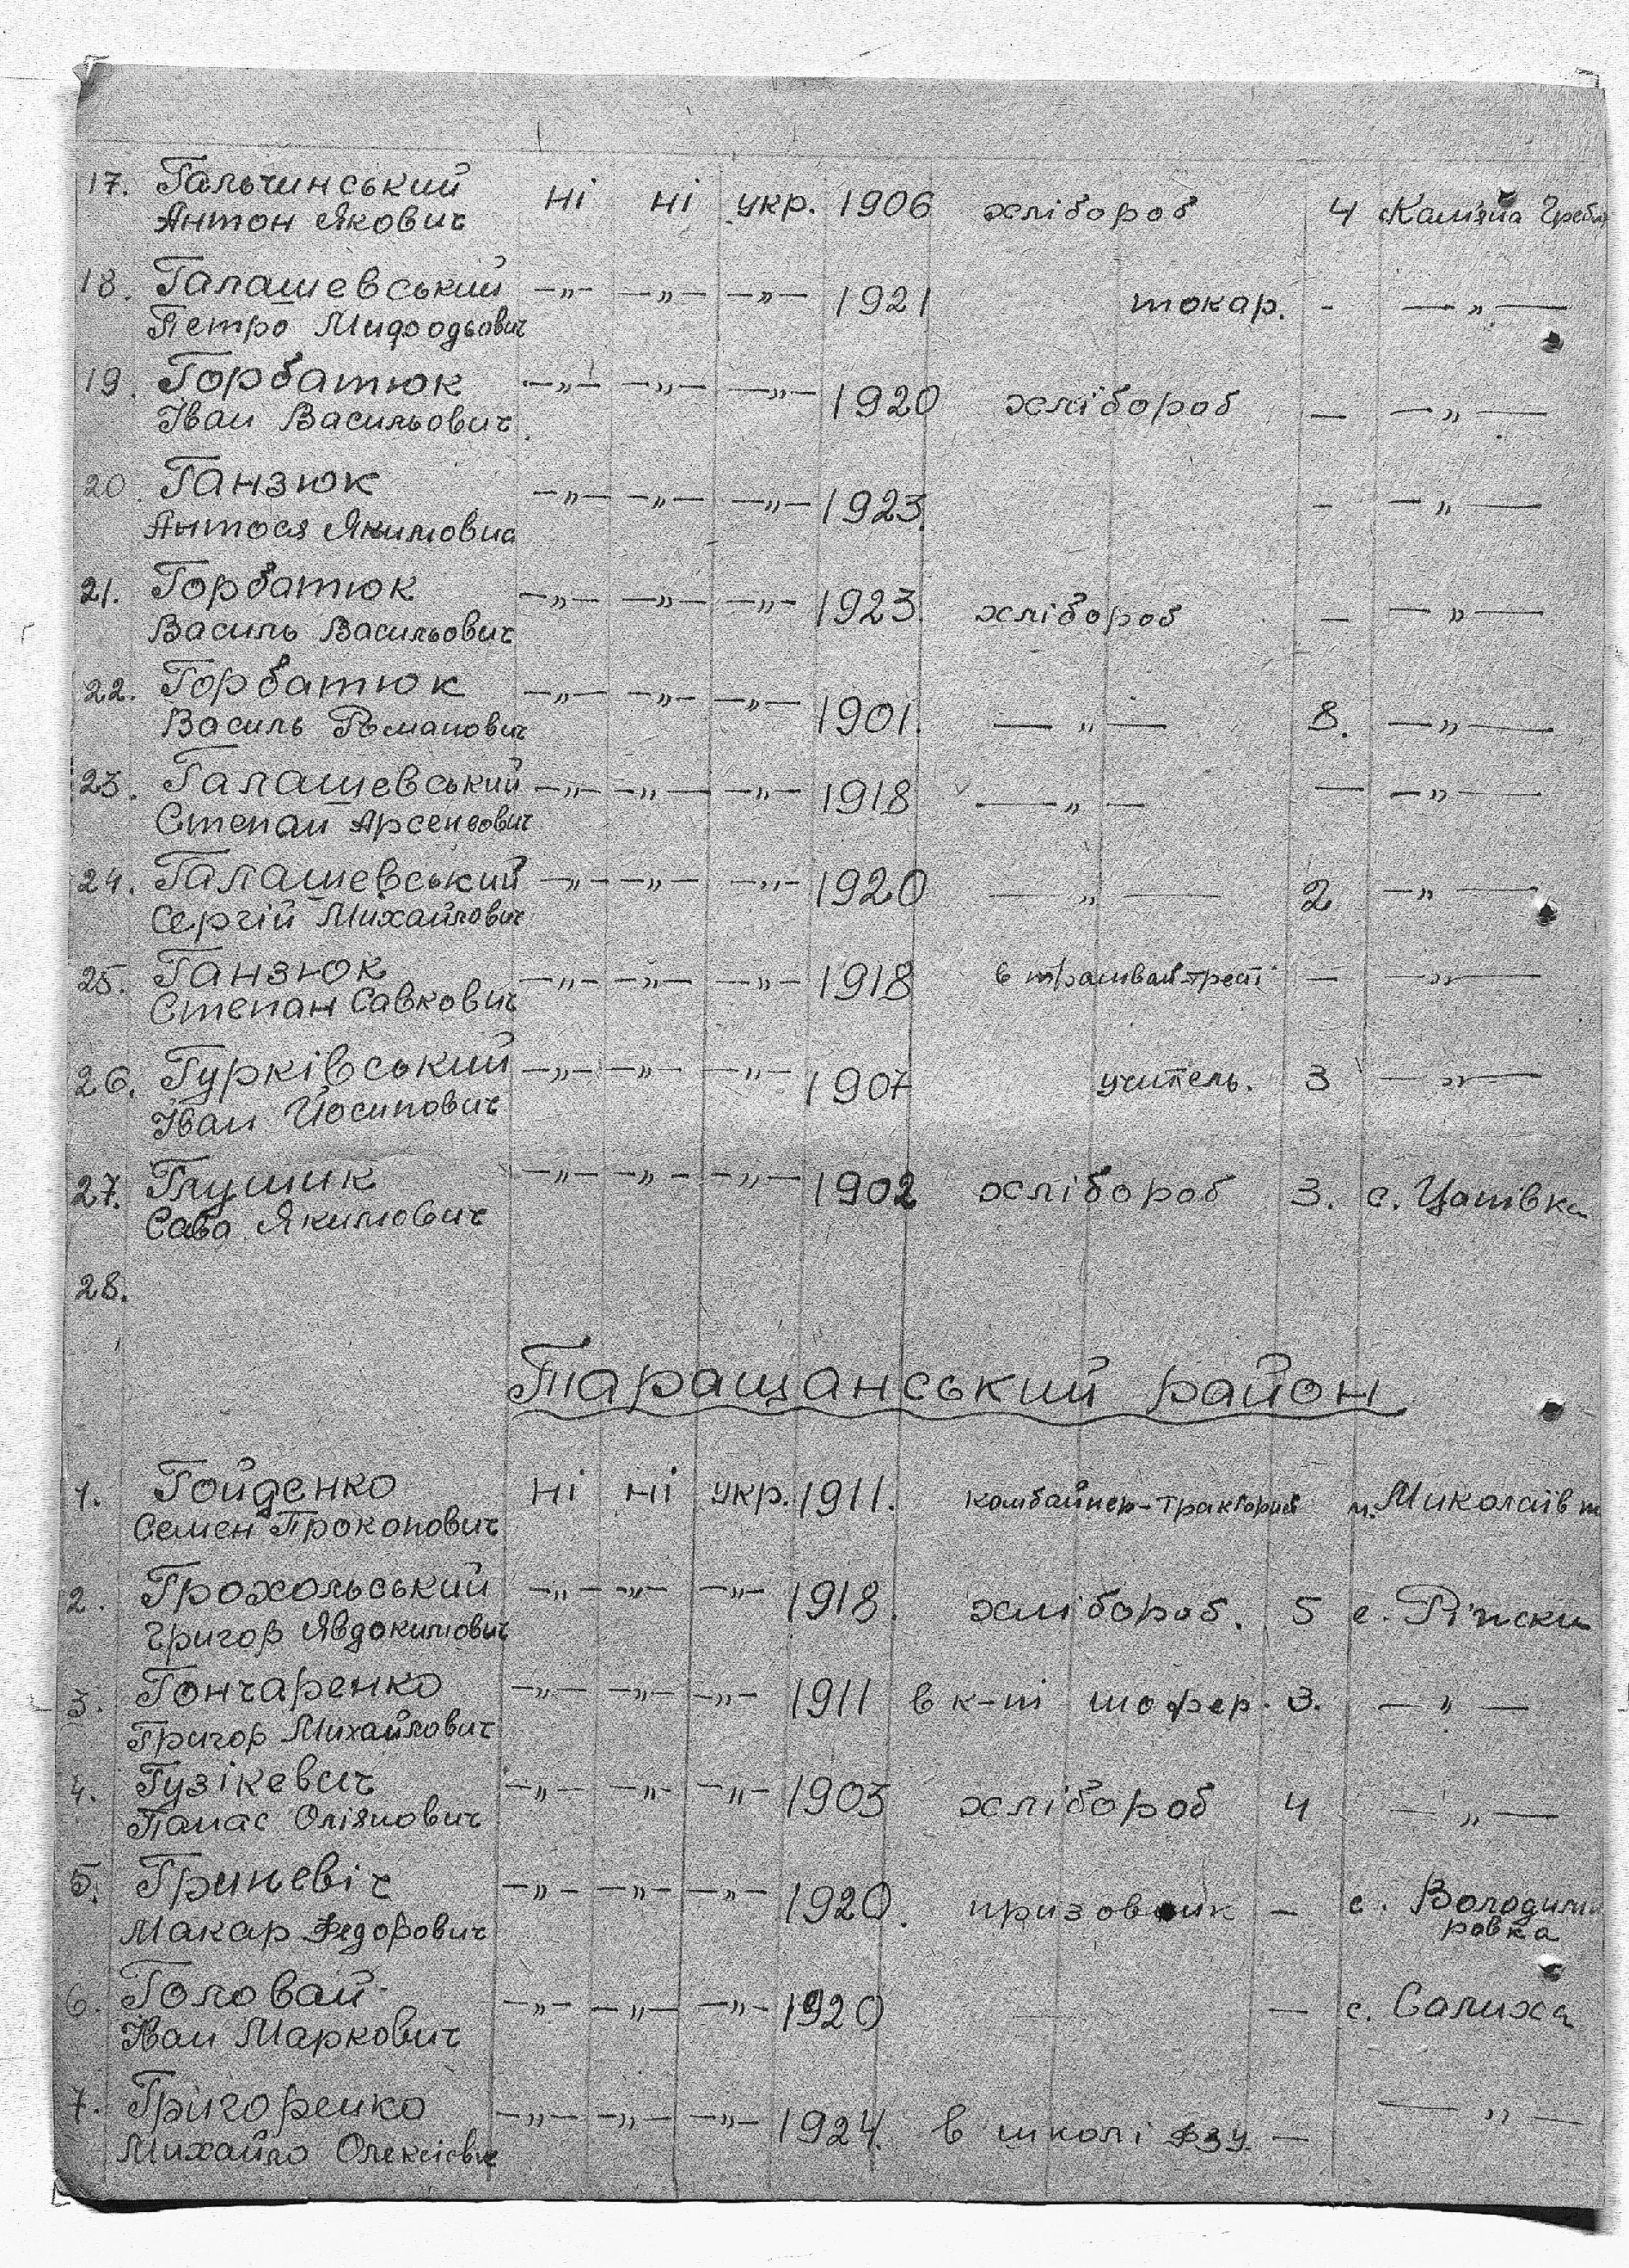 17. Гальчинський ні ні укр. 1906 хлібороб 4 Кам'яна Гребл
Антон Якович
18. Галашевський —„— —„— —„— 1921 токар. - —„—
Петро Мифодьович
19. Горбатюк —„— —„— —„— 1920 хлібороб — —„—
Іван Васильович
20. Ганзюк —„— —„— —„— 1923. - —„—
Антося Якимовна
21. Горбатюк —„— —„— —„— 1923. хлібороб — —„—
Василь Васильович
22. Горбатюк —„— —„— —„— 1901. —„— 8. —„—
Василь Романович
23. Галашевський —„— —„— —„— 1918 —„— — —„—
Степан Арсенєович
24. Галашевський —„— —„— —„— 1920 —„— 2 —„—
Сергій Михайлович
25. Ганзюк —„— —„— —„— 1918 в трамвай-трест — —„—
Степан Савкович
26. Гурківський —„— —„— —„— 1907 учитель. 3 —„—
Іван Йосипович
27. Глущик —„— —„— —„— 1902 хлібороб 3. с. Цапівка
Сава Якимович
28.
Таращанський район
1. Гойденко ні ні укр. 1911. комбайнер-тракторист м. Миколаїв
Семен Прокопович
2. Грохольський —„— —„— —„— 1918. хлібороб. 5 с. Ріжки
Григор Явдокимович
3. Гончаренко —„— —„— —„— 1911 в к-пі шофер. 3. —„—
Григор Михайлович
4. Гузікевич —„— —„— —„— 1903 хлібороб 4 —„—
Панас Оліянович
5. Гриневіч —„— —„— —„— 1920. призовник — с. Володими
ровка
Макар Федорович
6. Головай —„— —„— —„— 1920 — — с. Салиха
Іван Маркович
7. Григоренко —„— —„— —„— 1924. в школі ФЗУ — —„—
Михайло Олексієвич